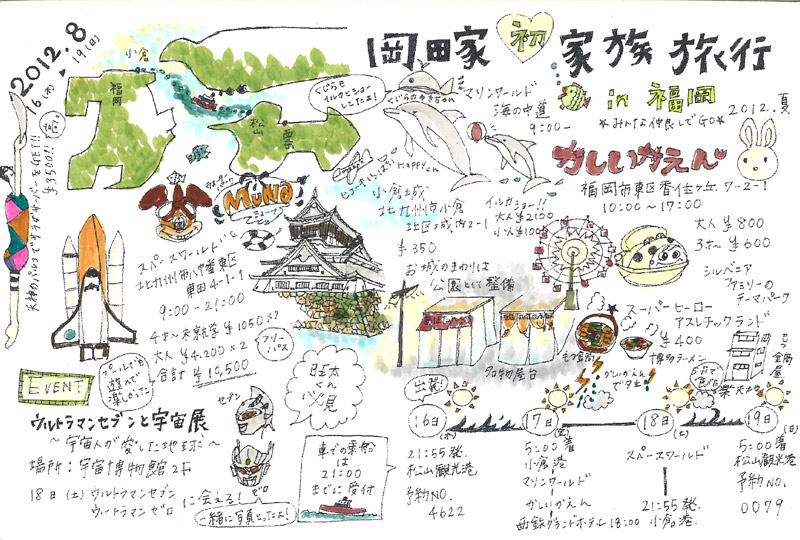 2012.8
16(木)
19(日)
岡田家 初 家族旅行
in 福岡
2012.夏
＊みんな仲良しでGO＊
小倉
福岡
松山
高い
くじらも
イルカとショー
してたよ!
くじらのゆきちゃん
マリンワールド
海の中道
9:00-
Happy
イルカショー!!
大人¥2100
小人¥1000
かしいかえん
福岡市東区香住ヶ丘7-2-1
10:00〜17:00
大人¥800
3才〜¥600
シルベニア
ファミリーの
テーマパーク
スーパーヒーロー
アスレチックランド
¥400
MUNA
スペースワールド
北九州市八幡東区
東田4-1-1
9:00-21:00
大人¥4200×2
合計¥10,500
フリー
パス
プールでも
遊んで
楽しかった
小倉城
北九州市小倉
北区城内2-1
¥350
お城のまわりは
公園として整備
名物屋台
博多ラーメン
かしいかえんで
夕立
EVENT
ウルトラマンセブンと宇宙展
〜宇宙人が愛した地球〜
場所：宇宙博物館2F
18日(土)ウルトラマンセブン
ウルトラマンゼロ
に会える!
一緒に写真とったよ!
セブン
ゼロ
くん
必見
車での乗船
は
21:00
までに受付
出発!
16日(木)
21:55発
松山観光港
予約NO.
4622
17日(金)
5:00着
小倉港
マリンワールド
かしいかえん
西鉄グランドホテル18:00
18日(土)
スペースワールド
21:55発
小倉港
19日(日)
5:00着
松山観光港
予約NO.
0079